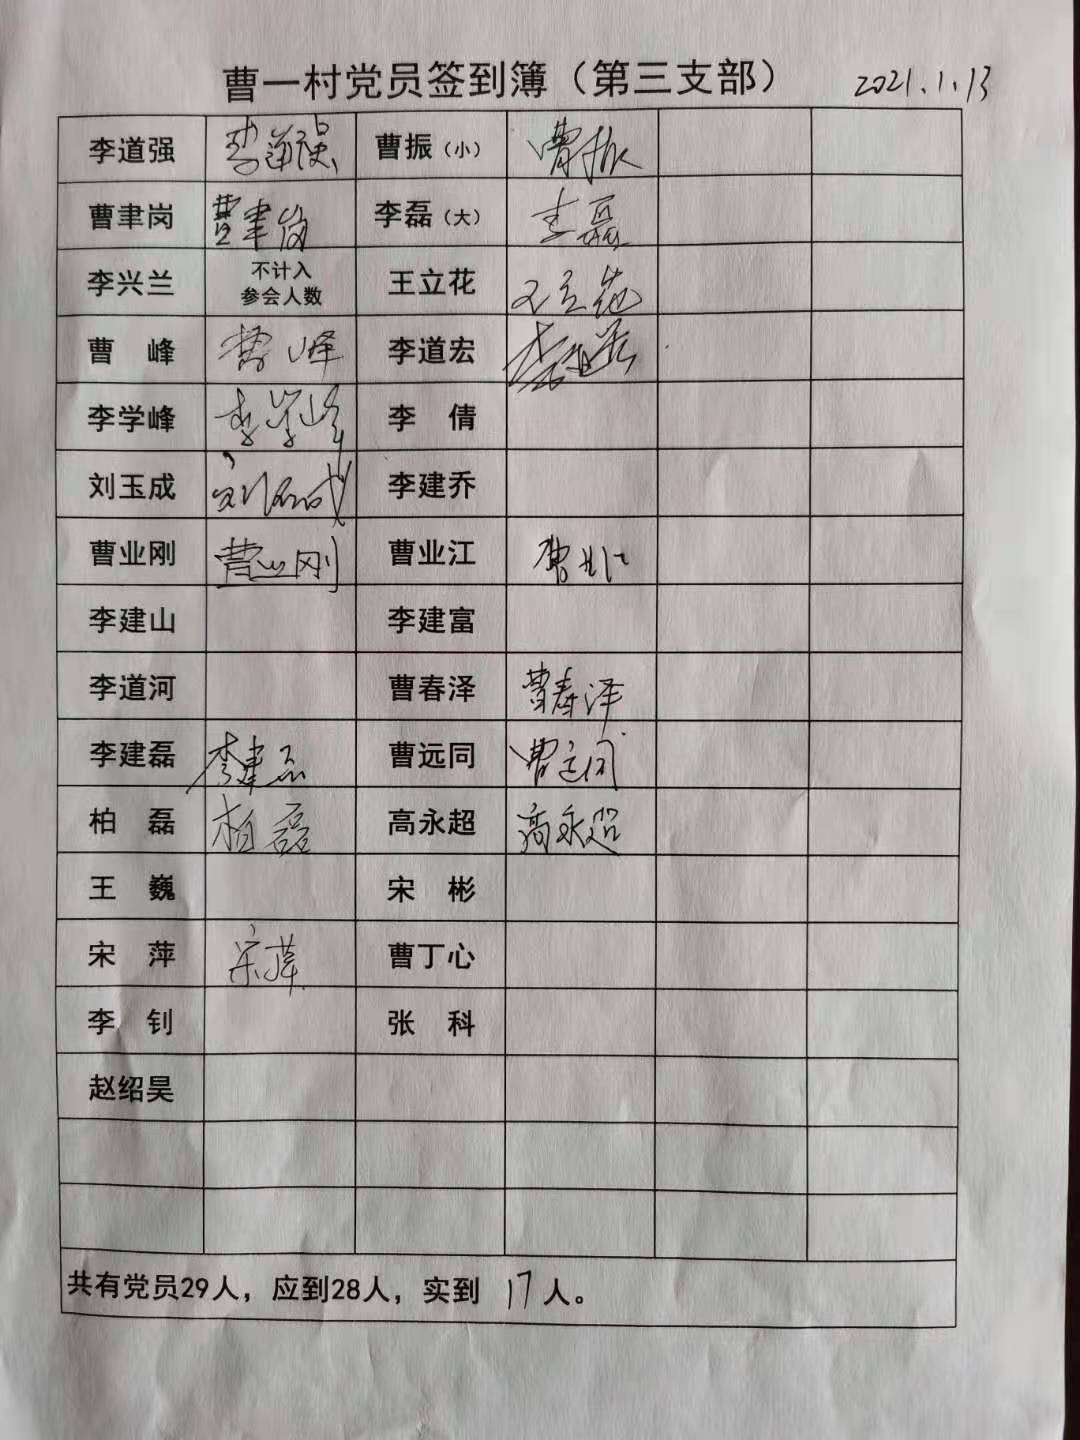 曹一村党员签到簿（第三支部） 2021.1.13
李道强 李道强 曹振（小） 曹振
曹聿岗 曹聿岗 李磊（大） 李磊
李兴兰 不计入 王立花 王立花
参会人数
曹 峰 曹峰 李道宏 李道宏
李学峰 李学峰 李 倩
刘玉成 刘玉成 李建乔
曹业刚 曹业刚 曹业江 曹业江
李建山 李建富
李道河 曹春泽 曹春泽
李建磊 李建磊 曹远同 曹远同
柏 磊 柏磊 高永超 高永超
王 巍 宋 彬
宋 萍 宋萍 曹丁心
李 钊 张 科
赵绍昊
共有党员29人，应到28人，实到 17 人。